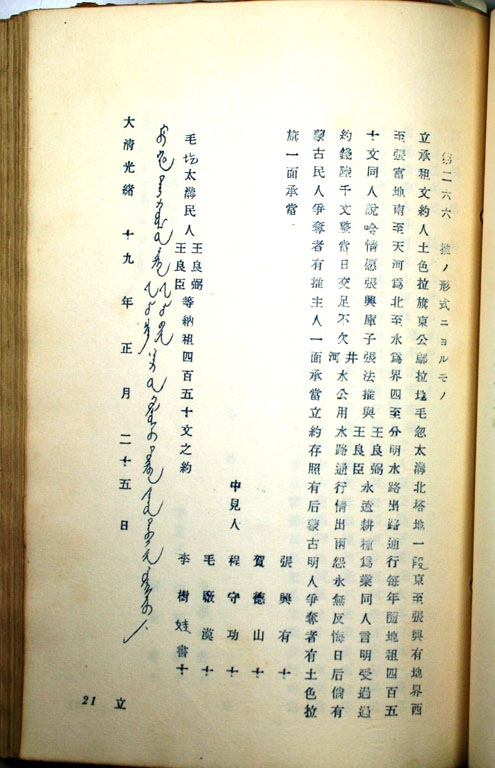 第二六六 推ノ形式ニヨルモノ
立承租文約人土色拉旗東公廍拉塲毛忽太溝北塔地一段東至張興有地界西
至張富地南至天河爲北至水爲界四至分明水路出路通行每年隨地租四百五
十文同人說哈情愿張興庫子張法推與王良弼王良臣永遠耕種爲業同人言明受過過
約錢陸千文整當日交足不欠井河水公用水路通行情出兩怨永無反悔日后倘有
蒙古民人爭奪者有推主人一面承當立約存照有后蒙古明人爭奪者有土色拉
旗一面承當
張興有十
賀德山十
中見人 程守功十
毛廠漢十
李樹娃書十
毛塏太溝民人王良弼王良臣等納租四百五十文之約
大淸光緒十九年正月二十五日 立
21